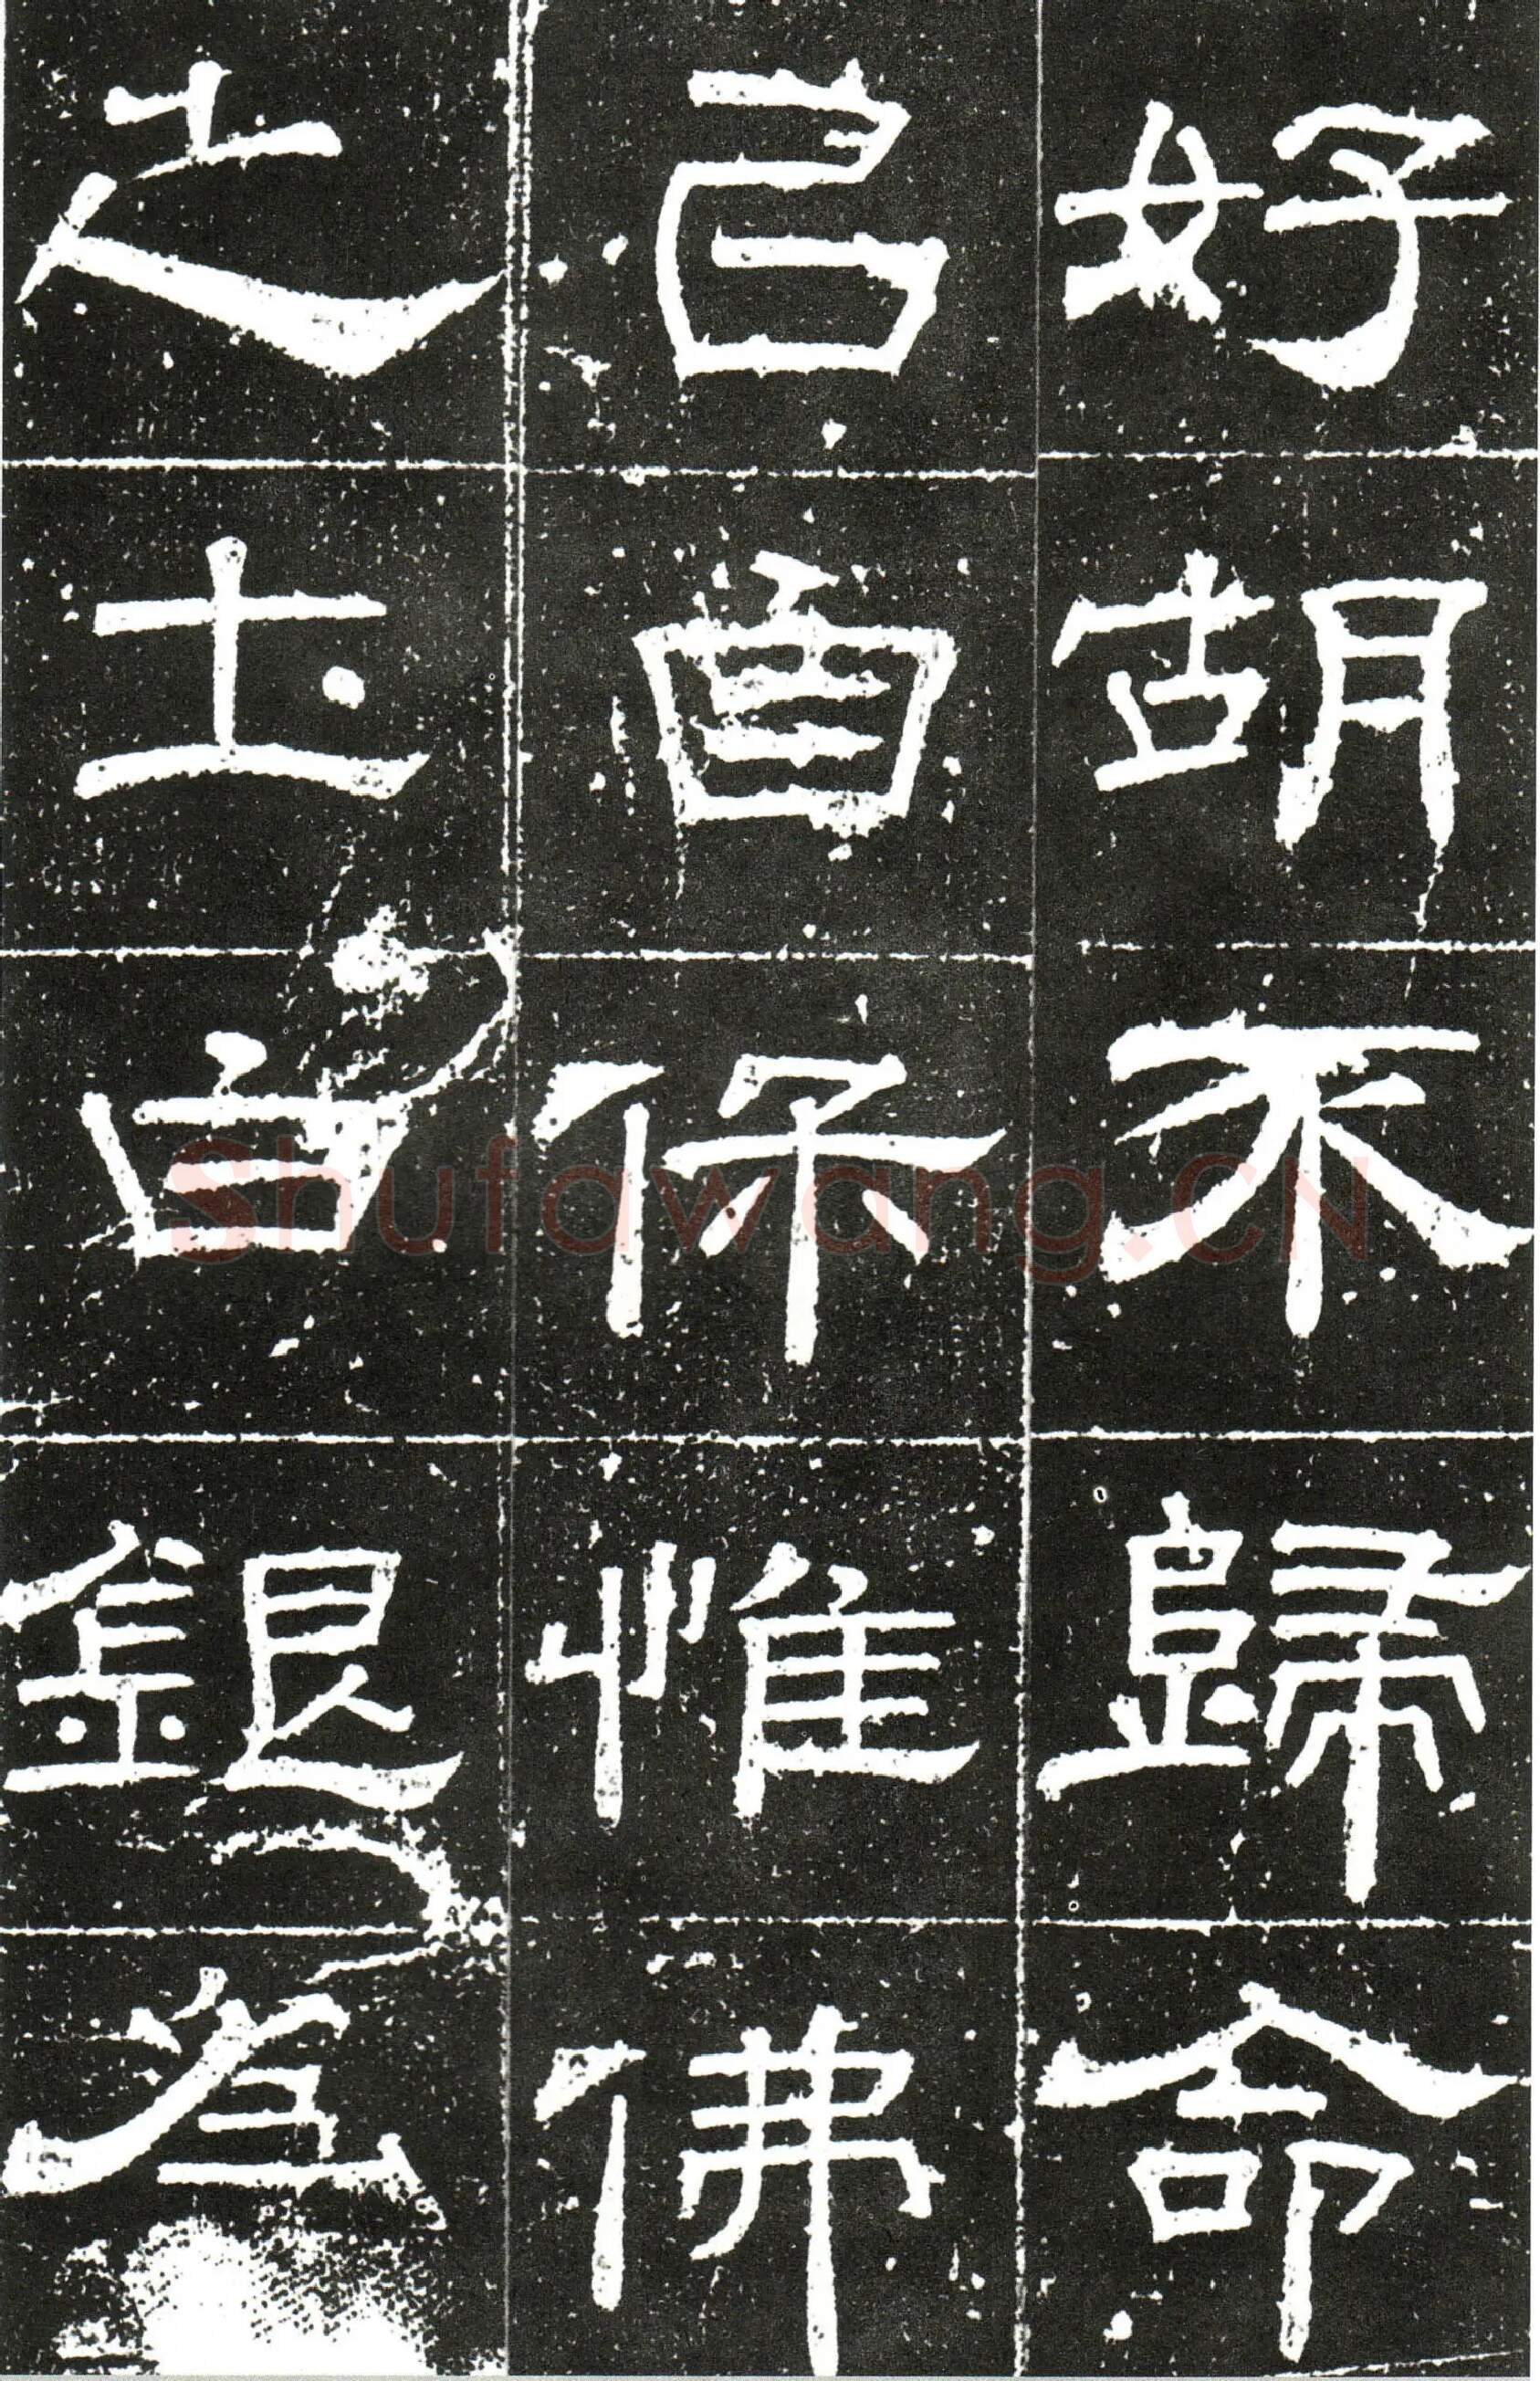 好胡不歸命
㠯面保惟佛
之土白銀為
shufawang.CN